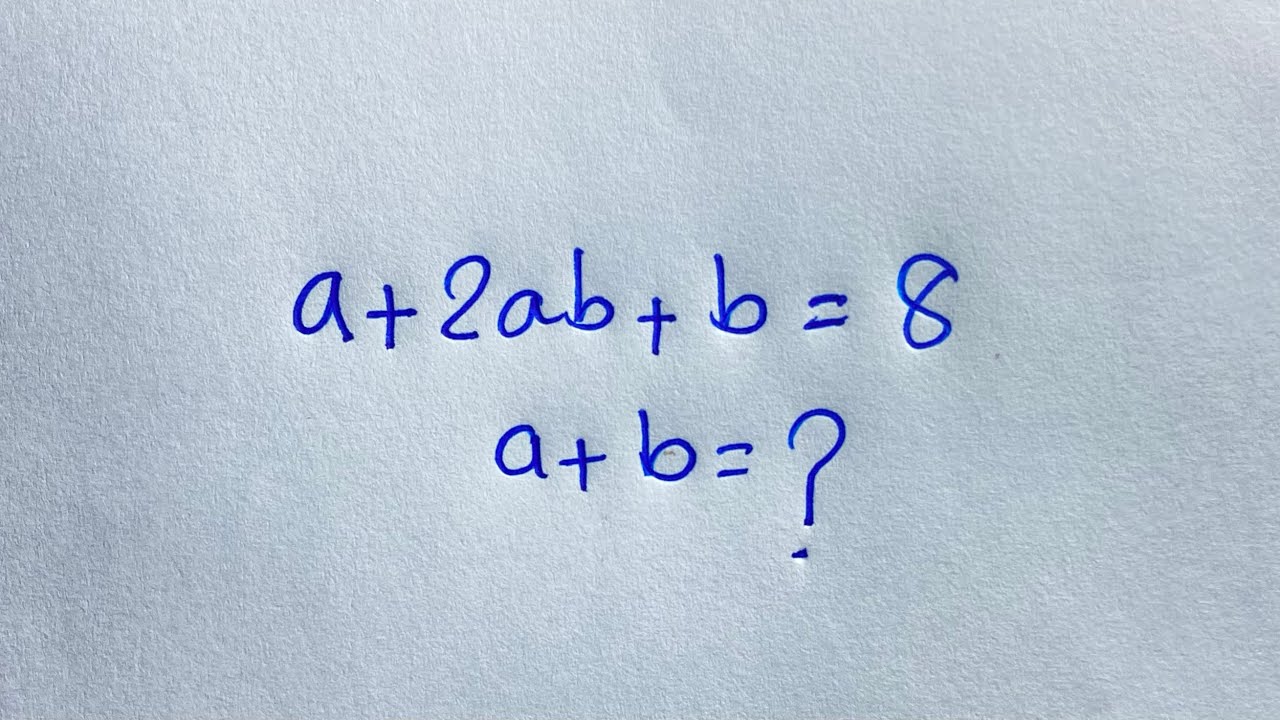 a+2ab+b=8
a+b=?